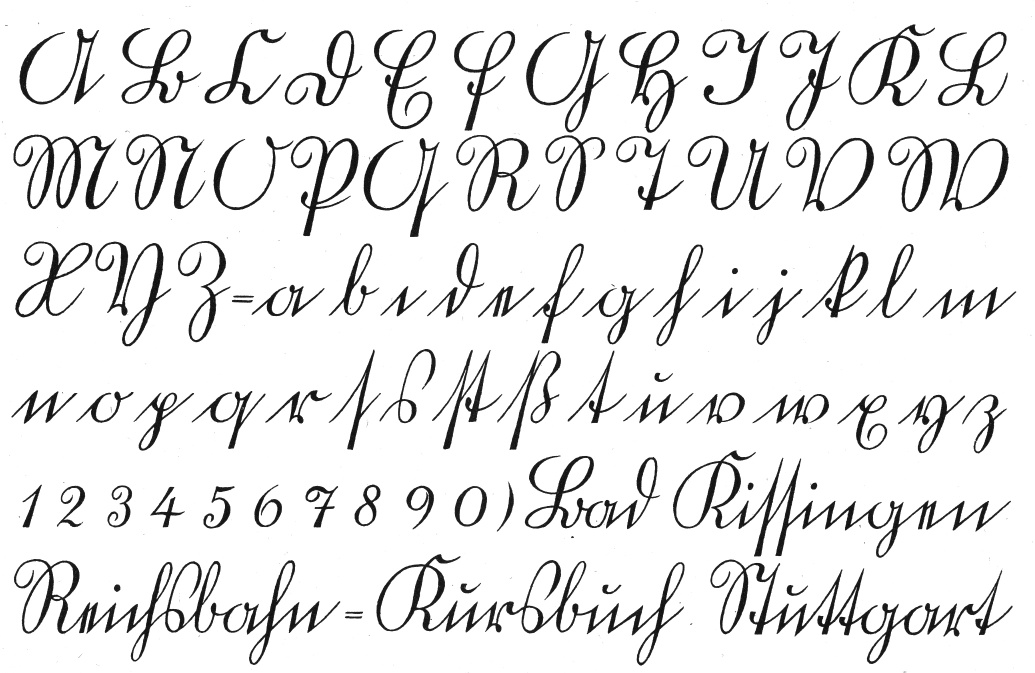 A B C D E F G H I J K L
M N O P Q R S T U V W
X Y Z = a b c d e f g h i j k l m
n o p q r ſ s ſt ß t u v w x y z
1 2 3 4 5 6 7 8 9 0 ) Bad Kiſſingen
Reichsbahn = Kursbuch Stuttgart